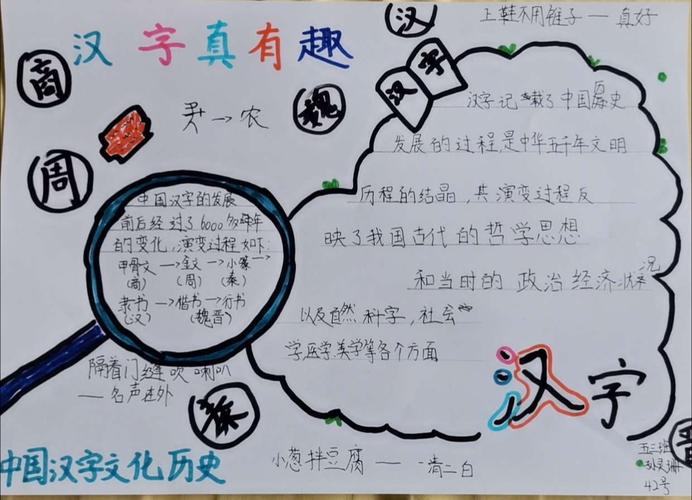 汉字真有趣
汉
上鞋不用锥子——真好
商
周
魏
尹→农
汉字
中国汉字的发展
前后经过了6000多年
的变化，演变过程如下：
甲骨文→金文→小篆→
(商) (周) (秦)
隶书→楷书→行书
(汉) (魏晋)
汉字记载了中国历史
发展的过程是中华五千年文明
历程的结晶，其演变过程反
映了我国古代的哲学思想
和当时的政治经济状况
以及自然科字，社会
学,医学,美学等各个方面
隔着门缝吹喇叭
——名声在外
秦
汉字
晋
中国汉字文化历史
小葱拌豆腐——一清二白
五二班
42号